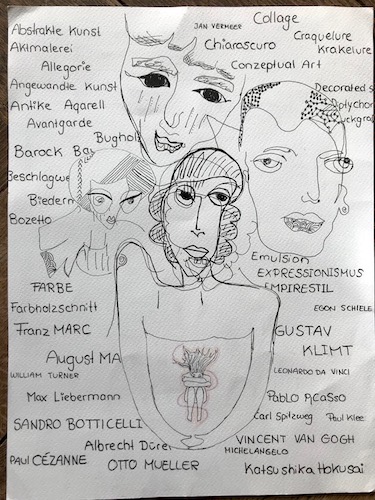 Abstrakte Kunst
JAN VERMEER
Collage
Aktmalerei
Craquelure
Krakelure
Chiaroscuro
Allegorie
Conzeptual Art
Angewandte Kunst
Decorated s
Antike Aqarell
Diptychon
Avantgarde
Bugholz
Barock
Beschlagwe
Biederm
Bozetto
Emulsion
EXPRESSIONISMUS
EMPIRESTIL
FARBE
EGON SCHIELE
Farbholzschnitt
Franz MARC
GUSTAV
KLIMT
August MA
WILLIAM TURNER
LEONARDO DA VINCI
Max Liebermann
PABLO PICASSO
Carl Spitzweg
Paul Klee
SANDRO BOTTICELLI
Albrecht Dürer
VINCENT VAN GOGH
MICHELANGELO
PAUL CÉZANNE
OTTO MUELLER
Katsushika Hokusai